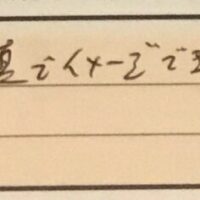 真でイメージで